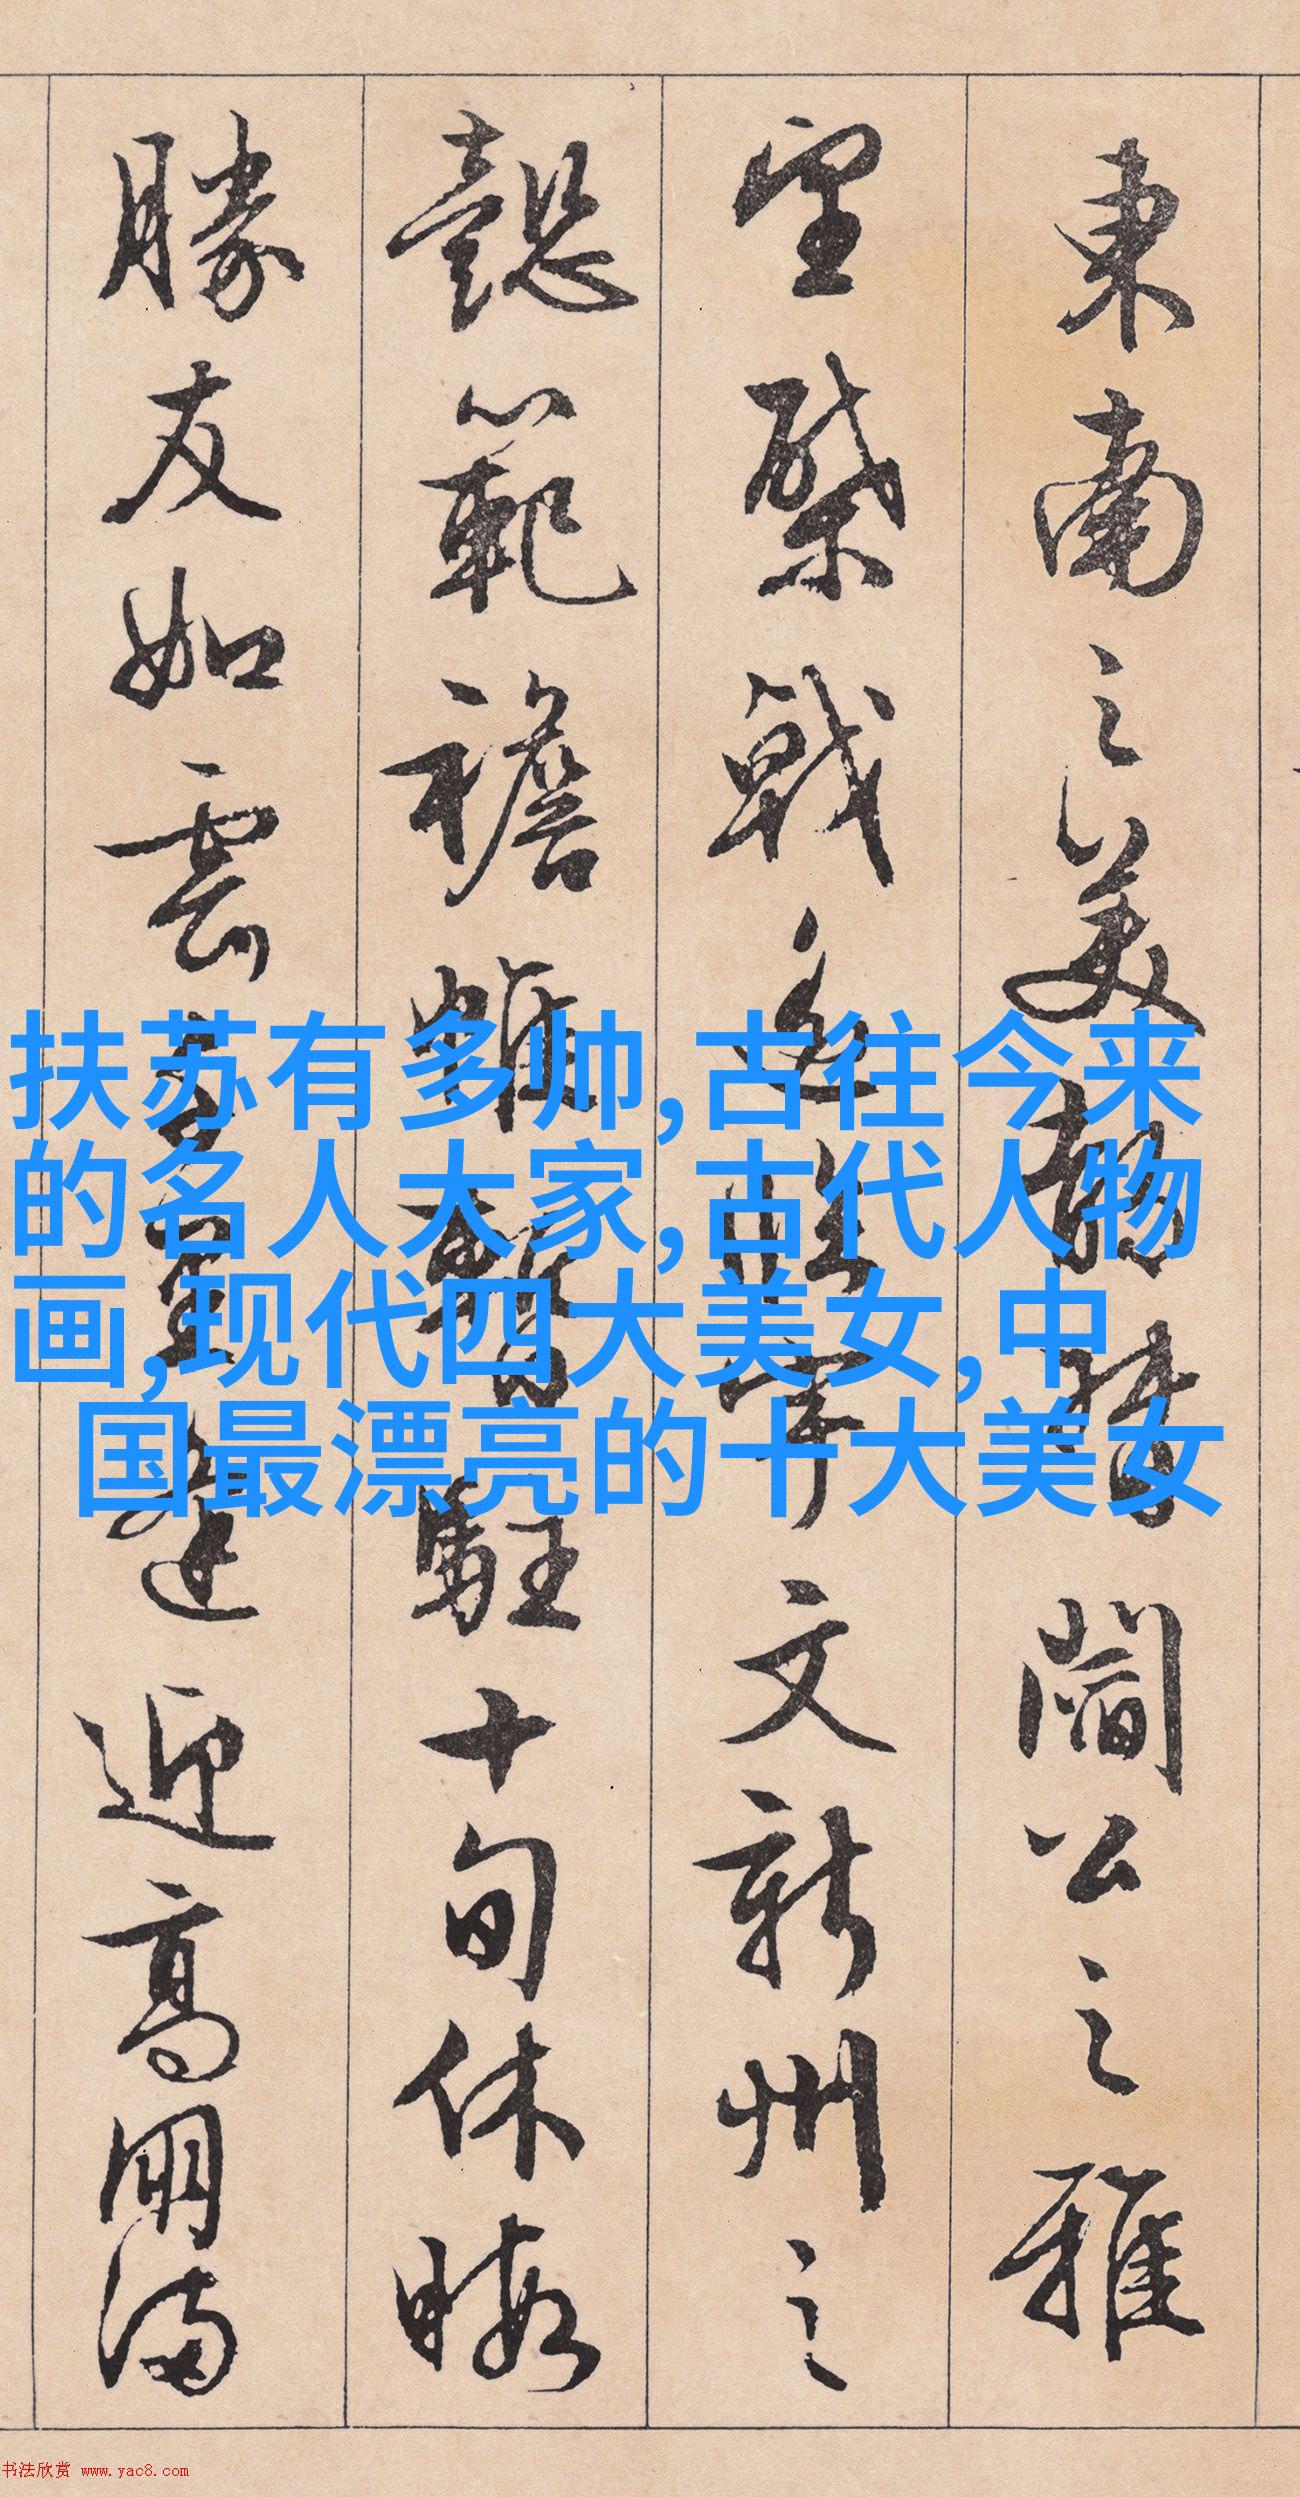 東南之美都督閻公之雅
望棨戟遙臨宇文新州之
懿範襜帷暫駐十旬休暇
勝友如雲千里逢迎高朋滿
扶苏有多帅,古往今来
的名人大家,古代人物
画,现代四大美女,中
国最漂亮的十大美女
书法欣赏 www.yac8.com